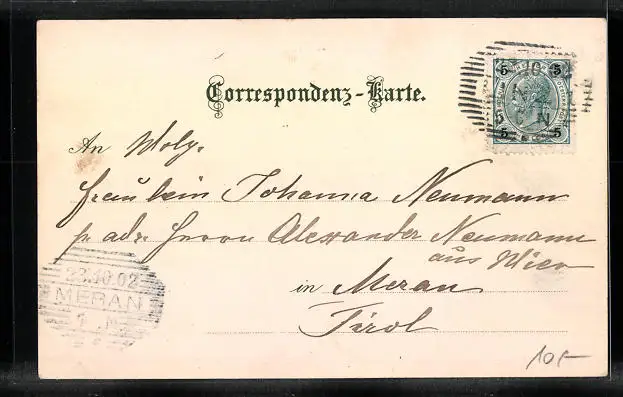 Correspondenz-Karte.
5 5
5 5
An Wolg.
Fräulein Johanna Neumann
pr adr. Herrn Alexander Neumann
aus Wien
in Meran
Tirol
23.10.02
MERAN
105-